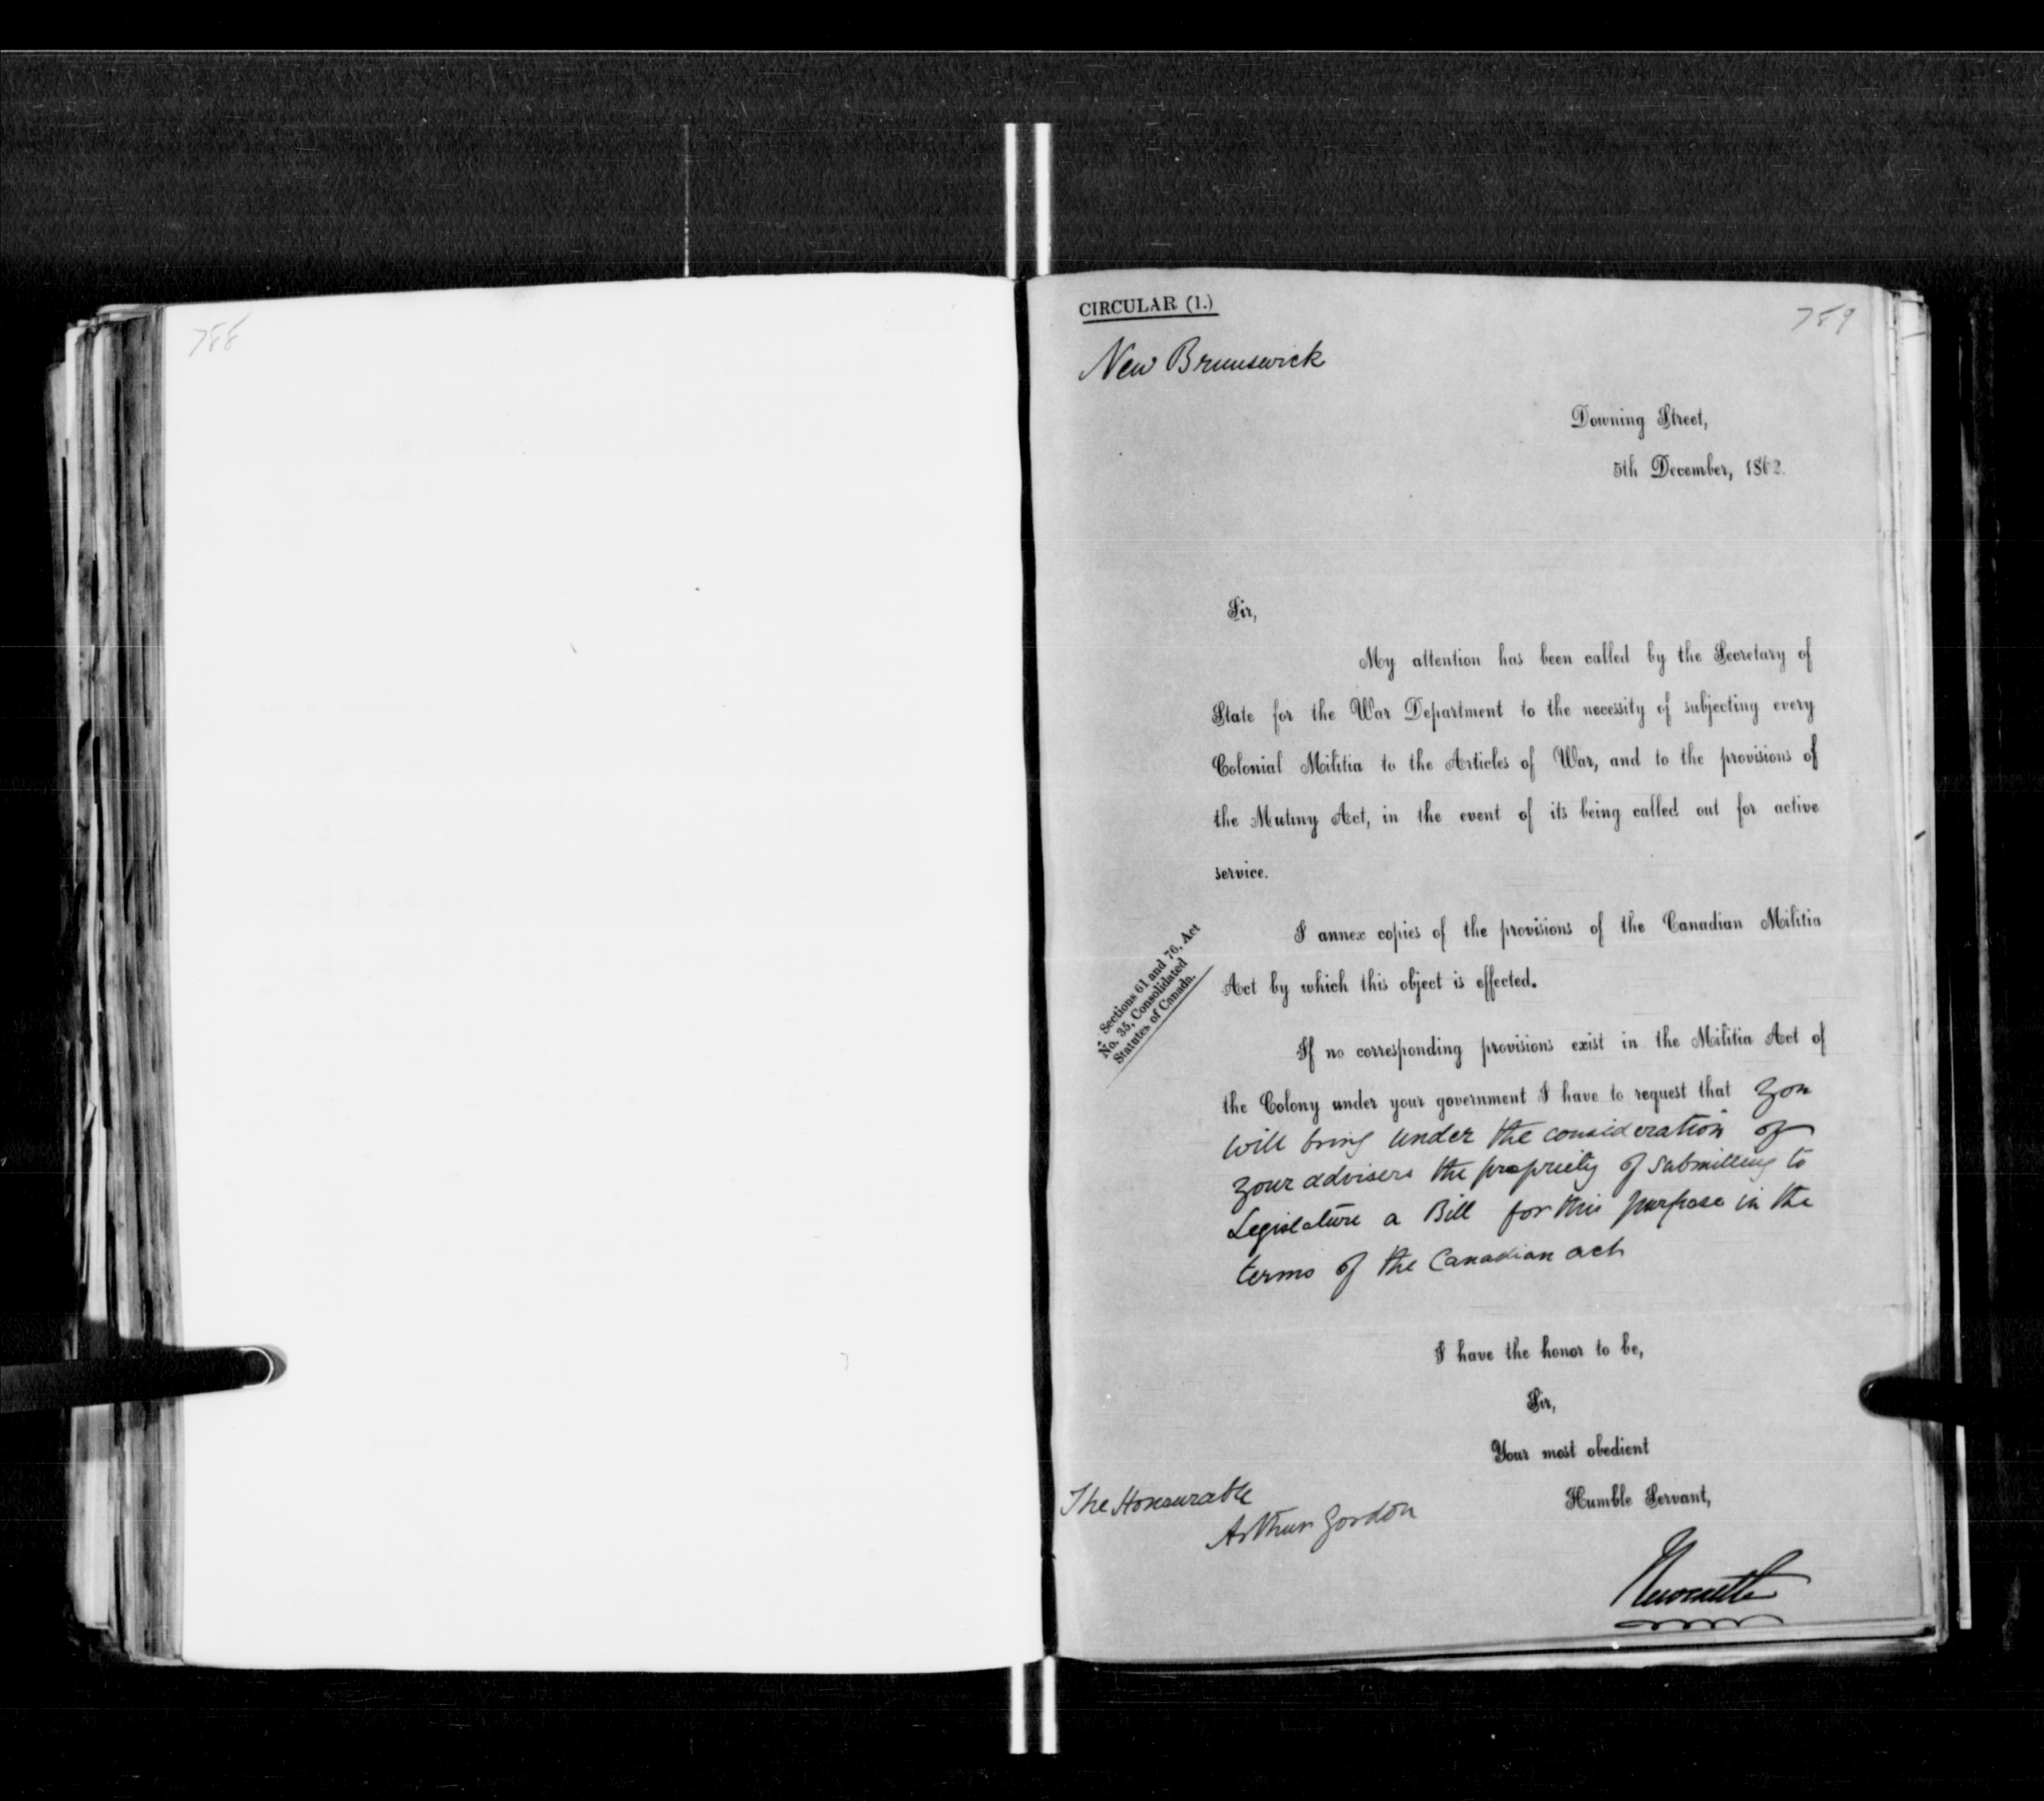 788
CIRCULAR (1.)
789
New Brunswick
Downing Street,
5th December, 1862.
Sir,
My attention has been called by the Secretary of
State for the War Department to the necessity of subjecting every
Colonial Militia to the Articles of War, and to the provisions of
the Mutiny Act, in the event of its being called out for active
service.
Sections 61 and 76, Act
No. 35, Consolidated
Statutes of Canada.
I annex copies of the provisions of the Canadian Militia
Act by which this object is effected.
If no corresponding provisions exist in the Militia Act of
the Colony under your government I have to request that you
will bring under the consideration of
your advisers the propriety of submitting to
Legislature a Bill for this purpose in the
terms of the Canadian act
I have the honor to be,
Sir,
Your most obedient
Humble Servant,
The Honourable
Arthur Gordon
Newcastle